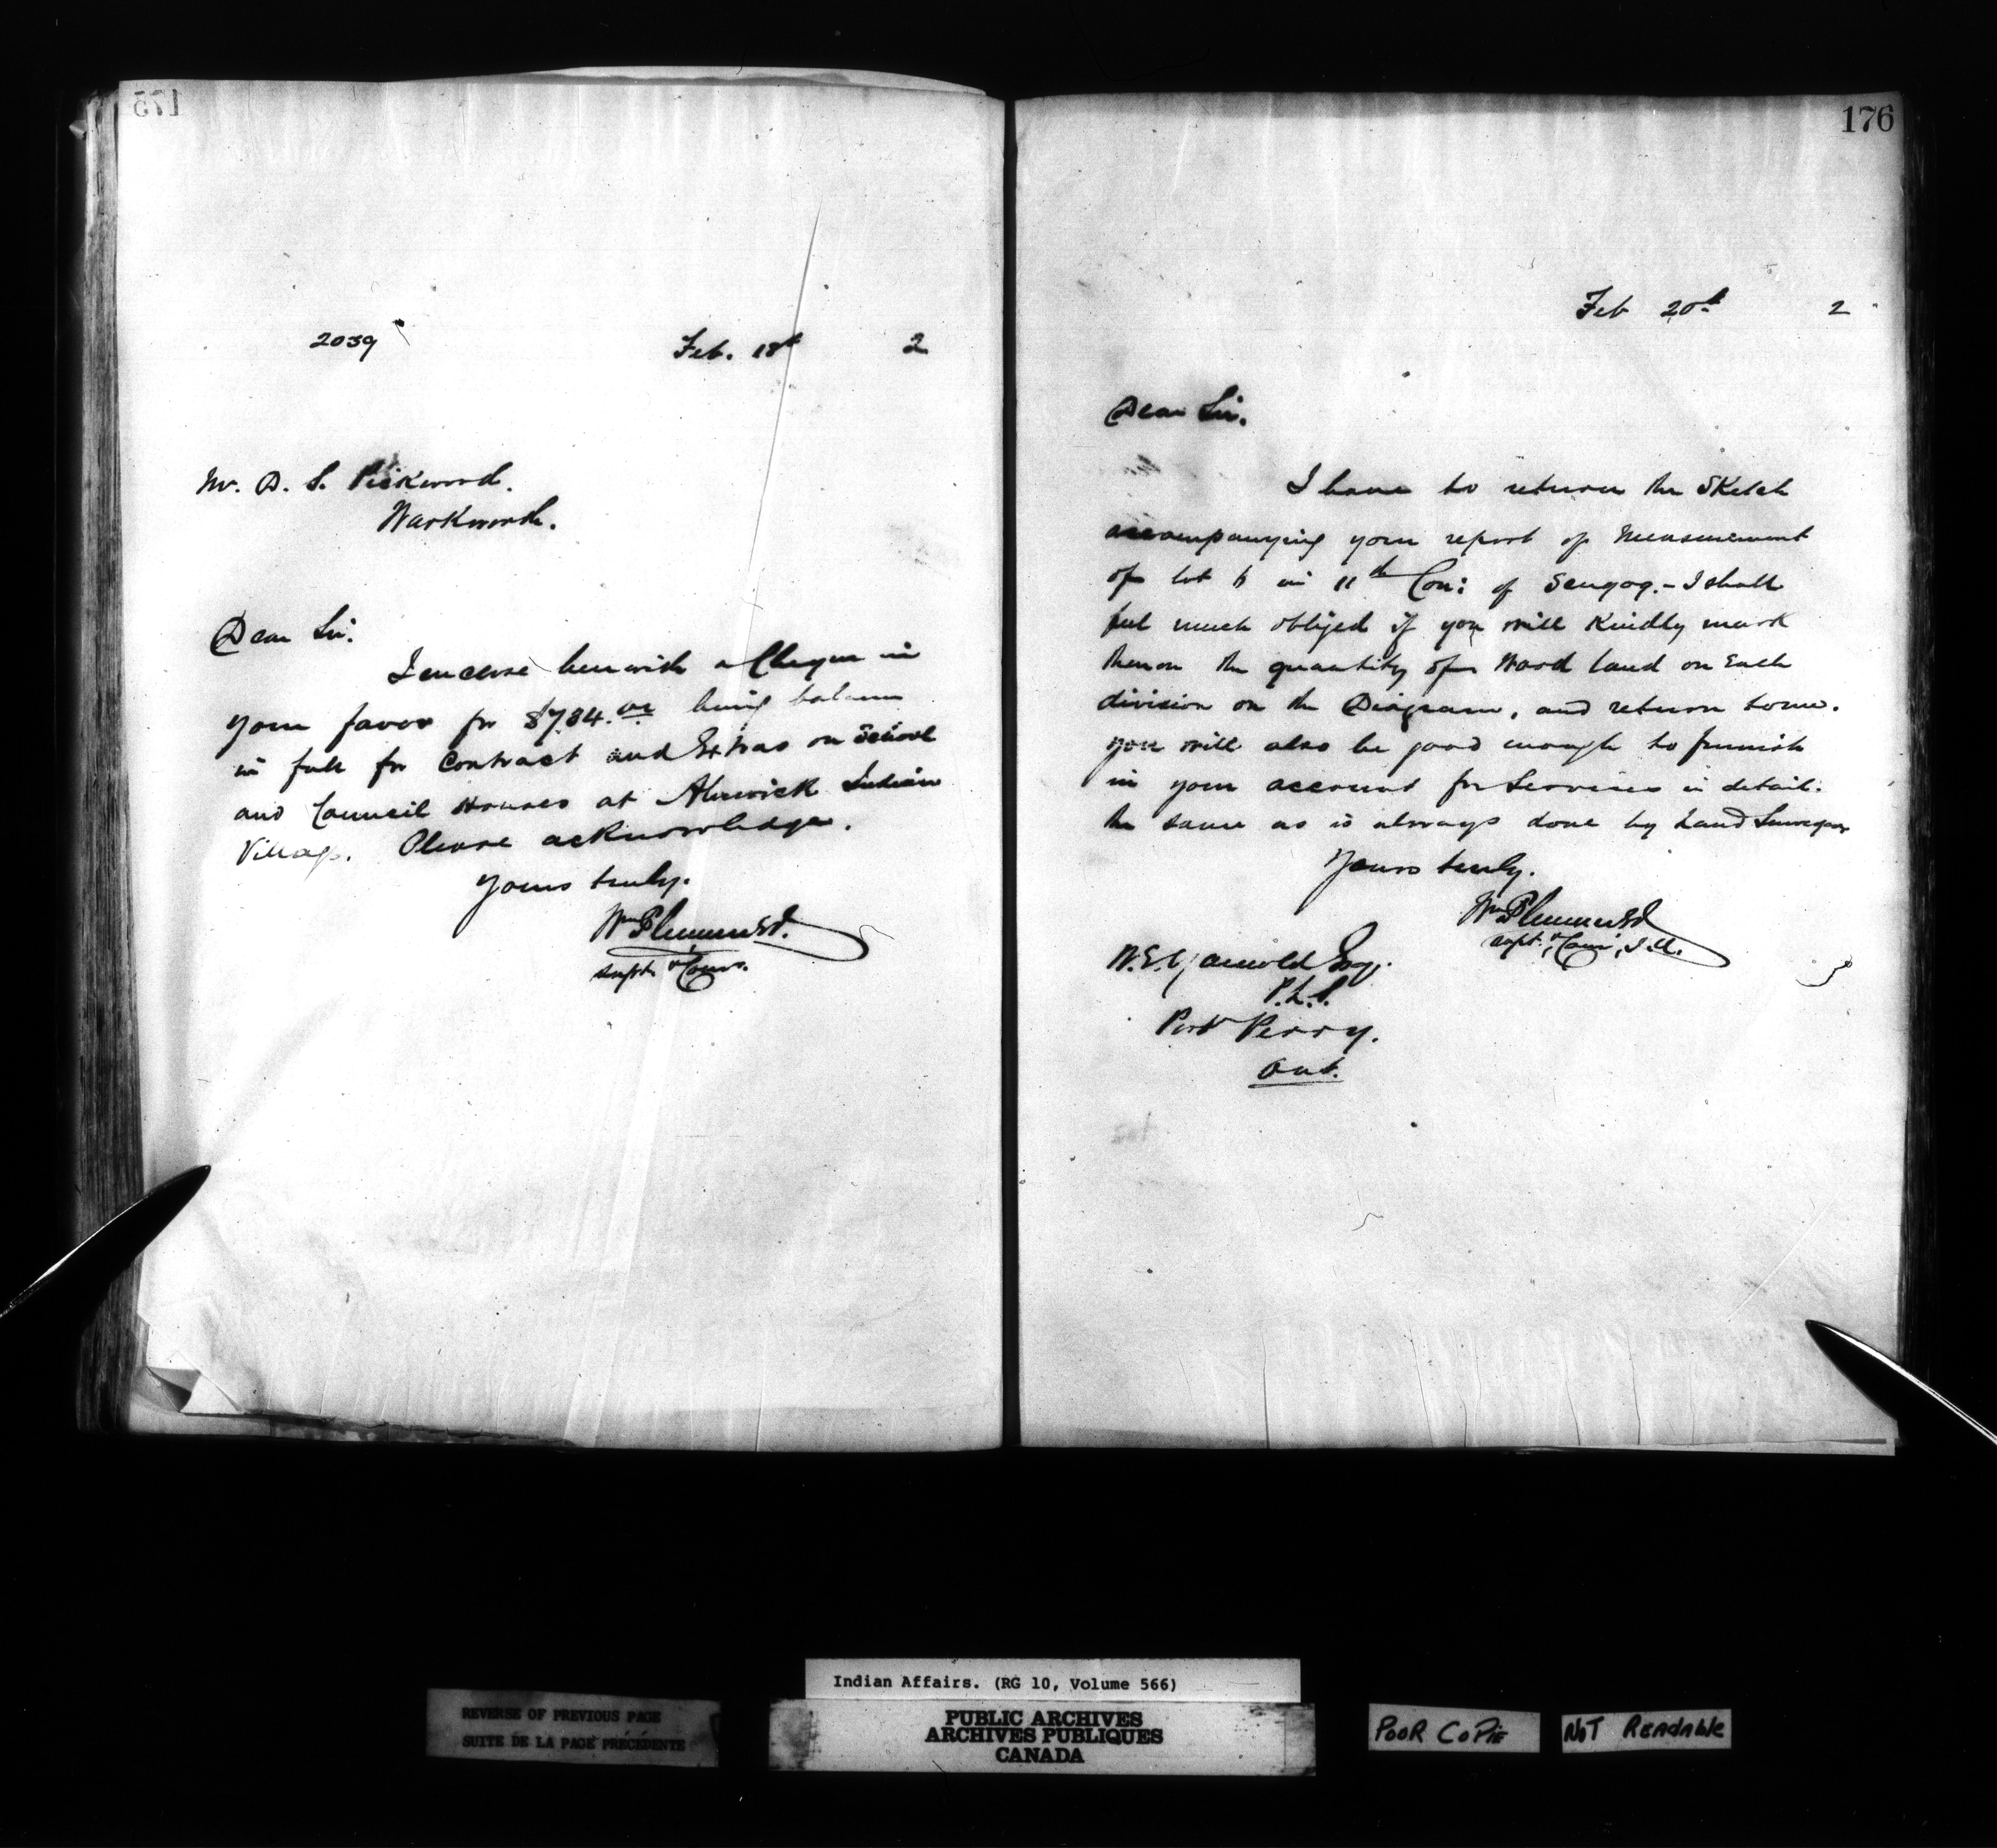 175
2039
Feb. 18th 2
Mr. D. S. Pickwood.
Warkworth.
Dear Sir.
I enclose herewith a Cheque in
your favor for $784.00 being balance
in full for Contract and Extras on School
and Council Houses at Alnwick Indian
Village. Please acknowledge.
Yours truly.
Wm Plummer
Supt & Comr.
176
Feb 20th 2
Dear Sir.
I have to return the Sketch
accompanying your report of Measurement
of lot in 11th Con: of Scugog. - I shall
feel much obliged if you will Kindly mark
thereon the quantity of Wood land on Each
division on the Diagram, and return to me.
You will also be good enough to furnish
in your account for Services in detail.
the same as is always done by Land Surveyors
Yours truly.
Wm Plummer
Supt. & Comr, I.A.
W.E. Yarnold Esq.
P.L.S.
Port Perry.
Ont.
Indian Affairs. (RG 10, Volume 566)
REVERSE OF PREVIOUS PAGE
SUITE DE LA PAGE PRÉCÉDENTE
PUBLIC ARCHIVES
ARCHIVES PUBLIQUES
CANADA
POOR COPIE
NOT READABLE